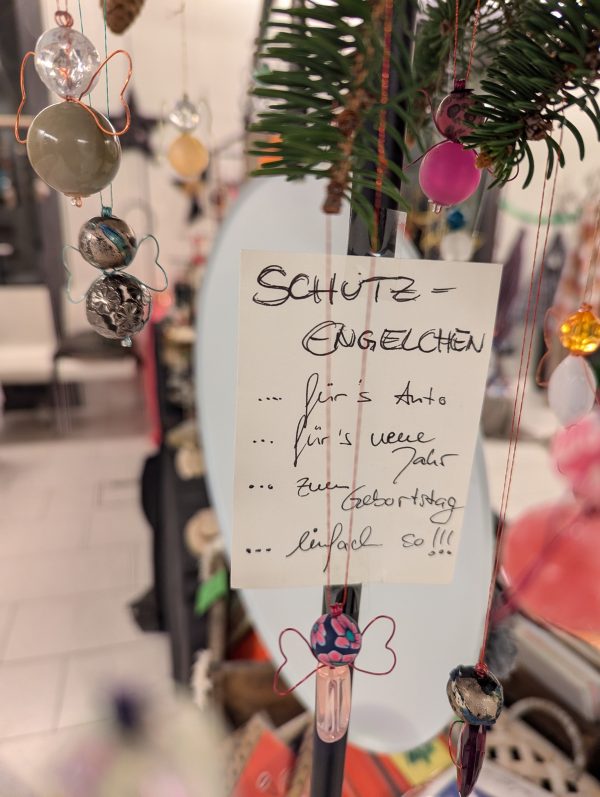 SCHUTZ-
ENGELCHEN
.... für's Auto
... für's neue
Jahr
... zum
Geburtstag
... einfach so!!!